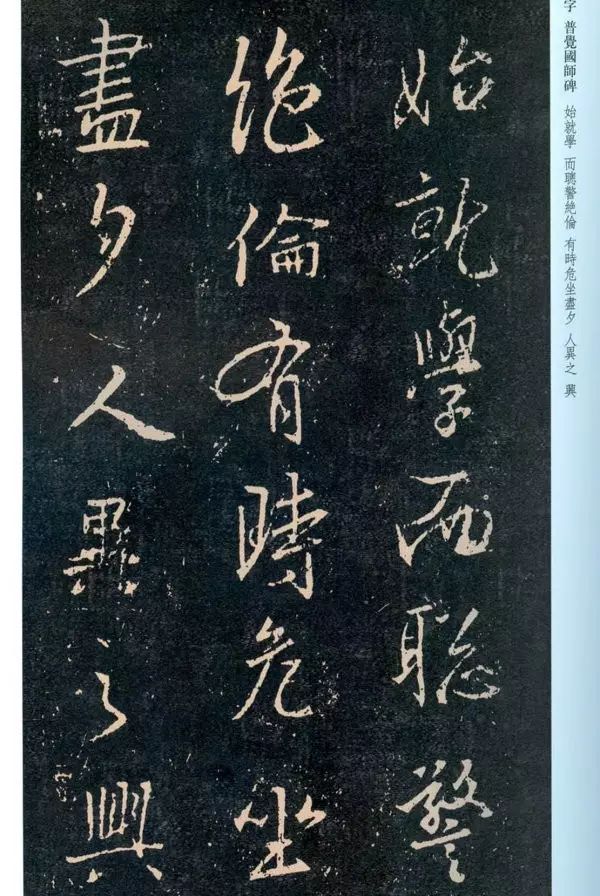 字 普覺國師碑 始就學 而聰警絕倫 有時危坐盡夕 人異之 興
始就學而聰警
絕倫有時危坐
盡夕人異之興